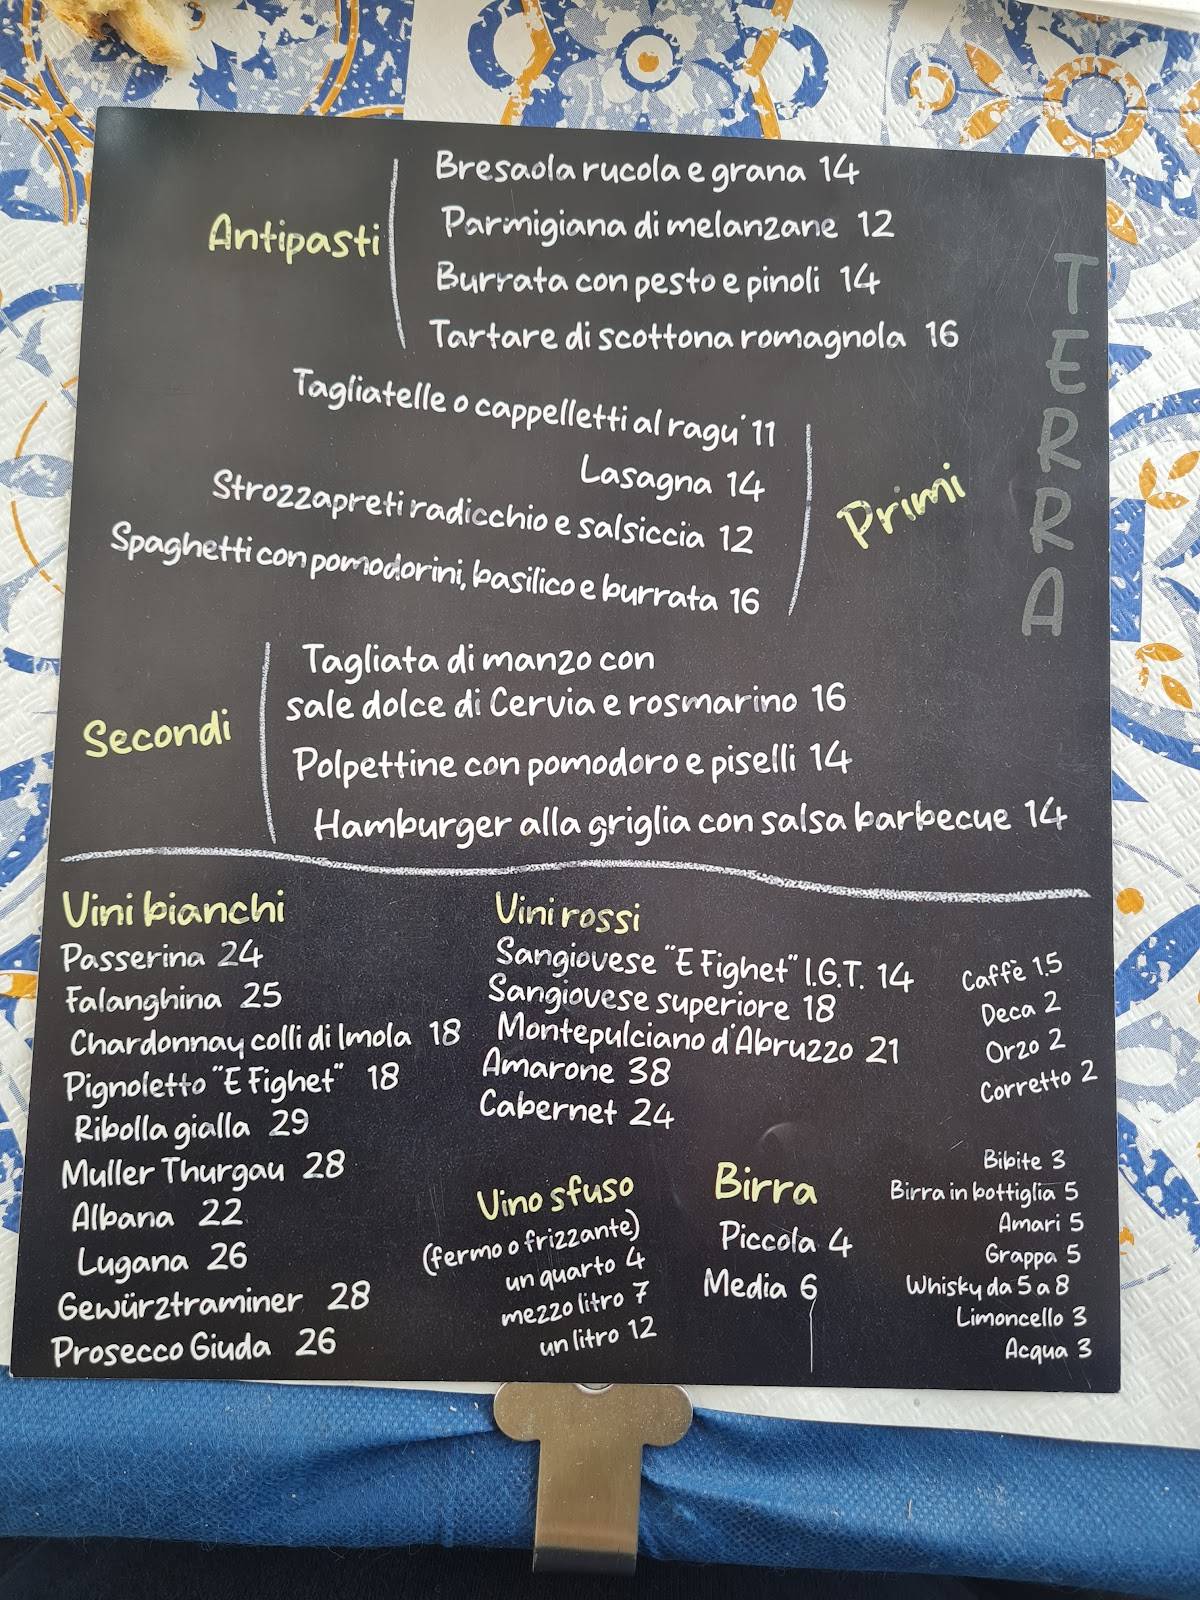 TERRA
Antipasti
Bresaola rucola e grana 14
Parmigiana di melanzane 12
Burrata con pesto e pinoli 14
Tartare di scottona romagnola 16
Primi
Tagliatelle o cappelletti al ragu' 11
Lasagna 14
Strozzapreti radicchio e salsiccia 12
Spaghetti con pomodorini, basilico e burrata 16
Secondi
Tagliata di manzo con
sale dolce di Cervia e rosmarino 16
Polpettine con pomodoro e piselli 14
Hamburger alla griglia con salsa barbecue 14
Vini bianchi
Passerina 24
Falanghina 25
Chardonnay colli di Imola 18
Pignoletto "E Fighet" 18
Ribolla gialla 29
Muller Thurgau 28
Albana 22
Lugana 26
Gewürztraminer 28
Prosecco Giuda 26
Vini rossi
Sangiovese "E Fighet" I.G.T. 14
Sangiovese superiore 18
Montepulciano d'Abruzzo 21
Amarone 38
Cabernet 24
Vino sfuso
(fermo o frizzante)
un quarto 4
mezzo litro 7
un litro 12
Birra
Piccola 4
Media 6
Caffè 1.5
Deca 2
Orzo 2
Corretto 2
Bibite 3
Birra in bottiglia 5
Amari 5
Grappa 5
Whisky da 5 a 8
Limoncello 3
Acqua 3